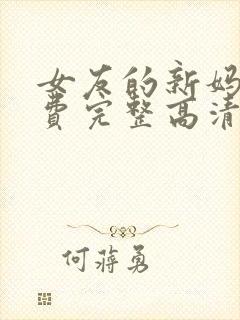 女友的新妈
费完整高清
何蒋勇